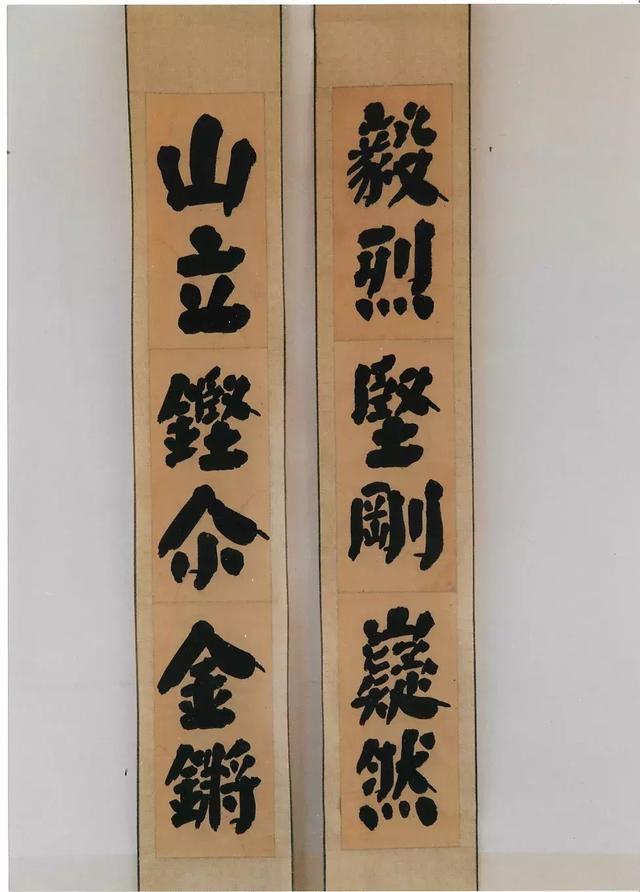 毅烈堅剛嶷然
山立鏗尒金鏘